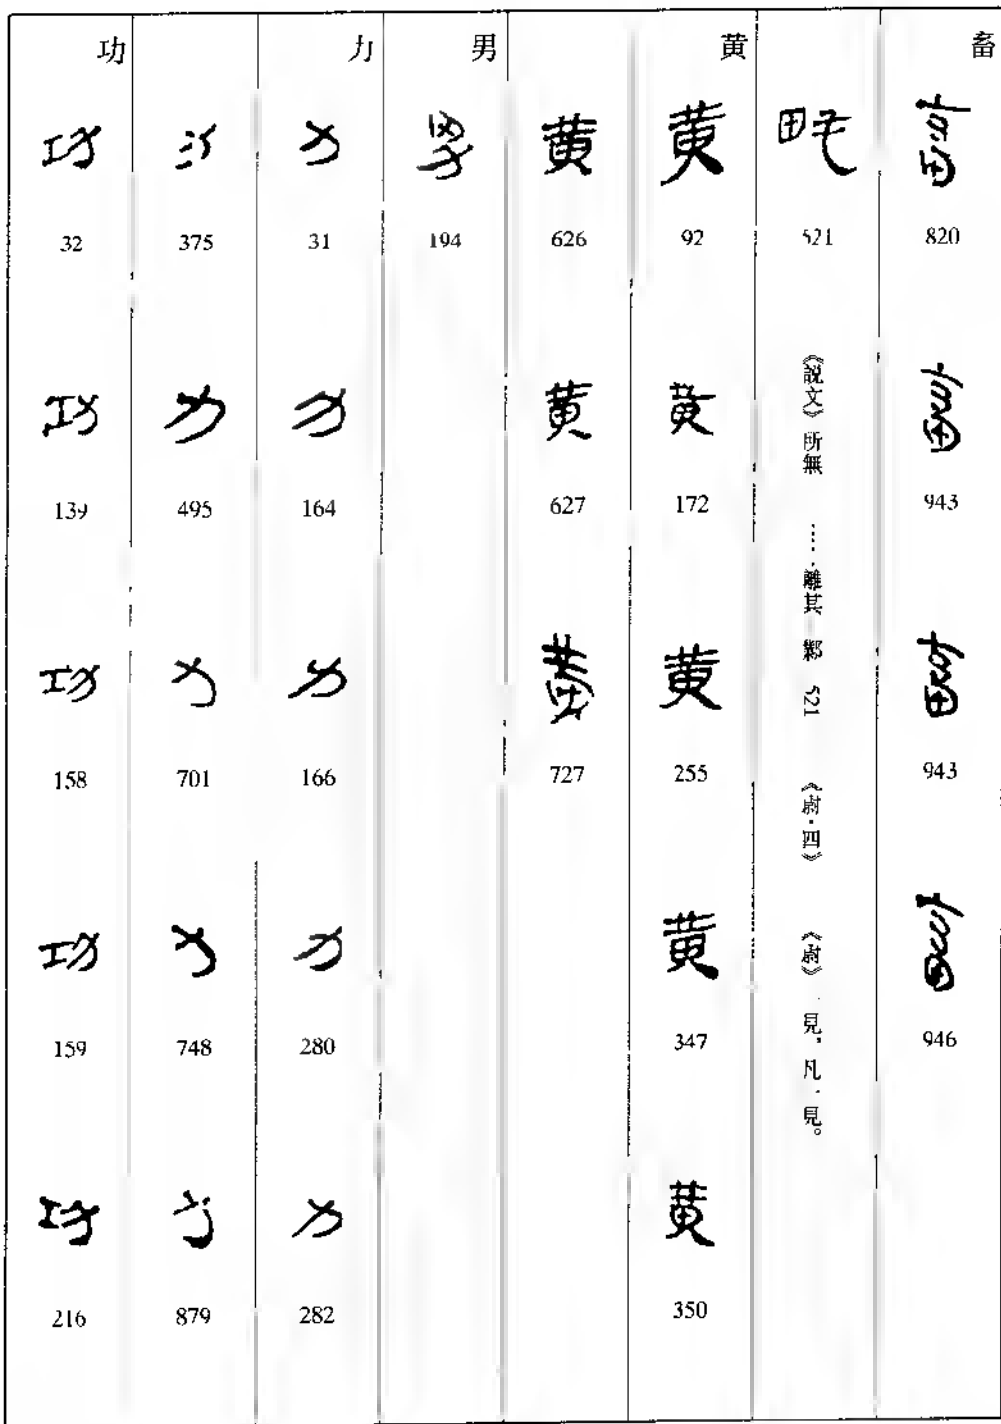 畜
820
943
943
946
521
《説文》所無 ……離其鄴 521 《尉·四》 《尉》一見，凡一見。
黄
92
172
255
347
350
626
627
727
男
194
力
31
164
166
280
282
375
495
701
748
879
功
32
139
158
159
216